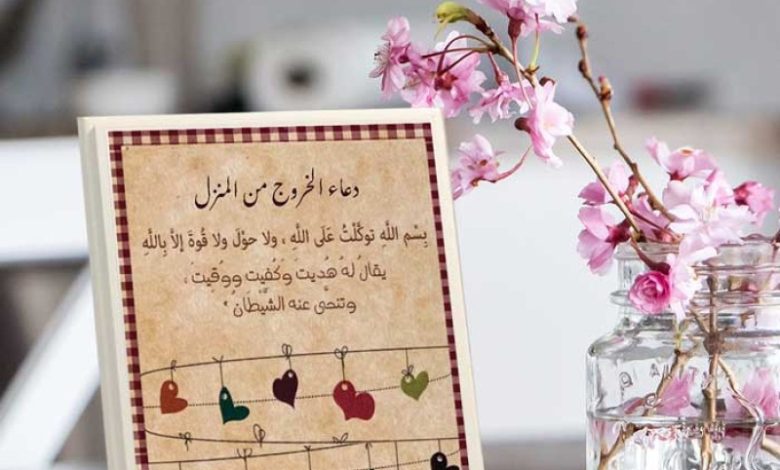 دعاء الخروج من المنزل
بِسْمِ اللَّهِ توكَّلْتُ عَلَى اللَّهِ ، ولا حوْلَ ولا قوةَ إلاَّ بِاللَّهِ
يقالُ لهُ هُديتَ وَكُفِيت ووُقِيتَ ،
وتنحَّى عنه الشَّيْطَانُ